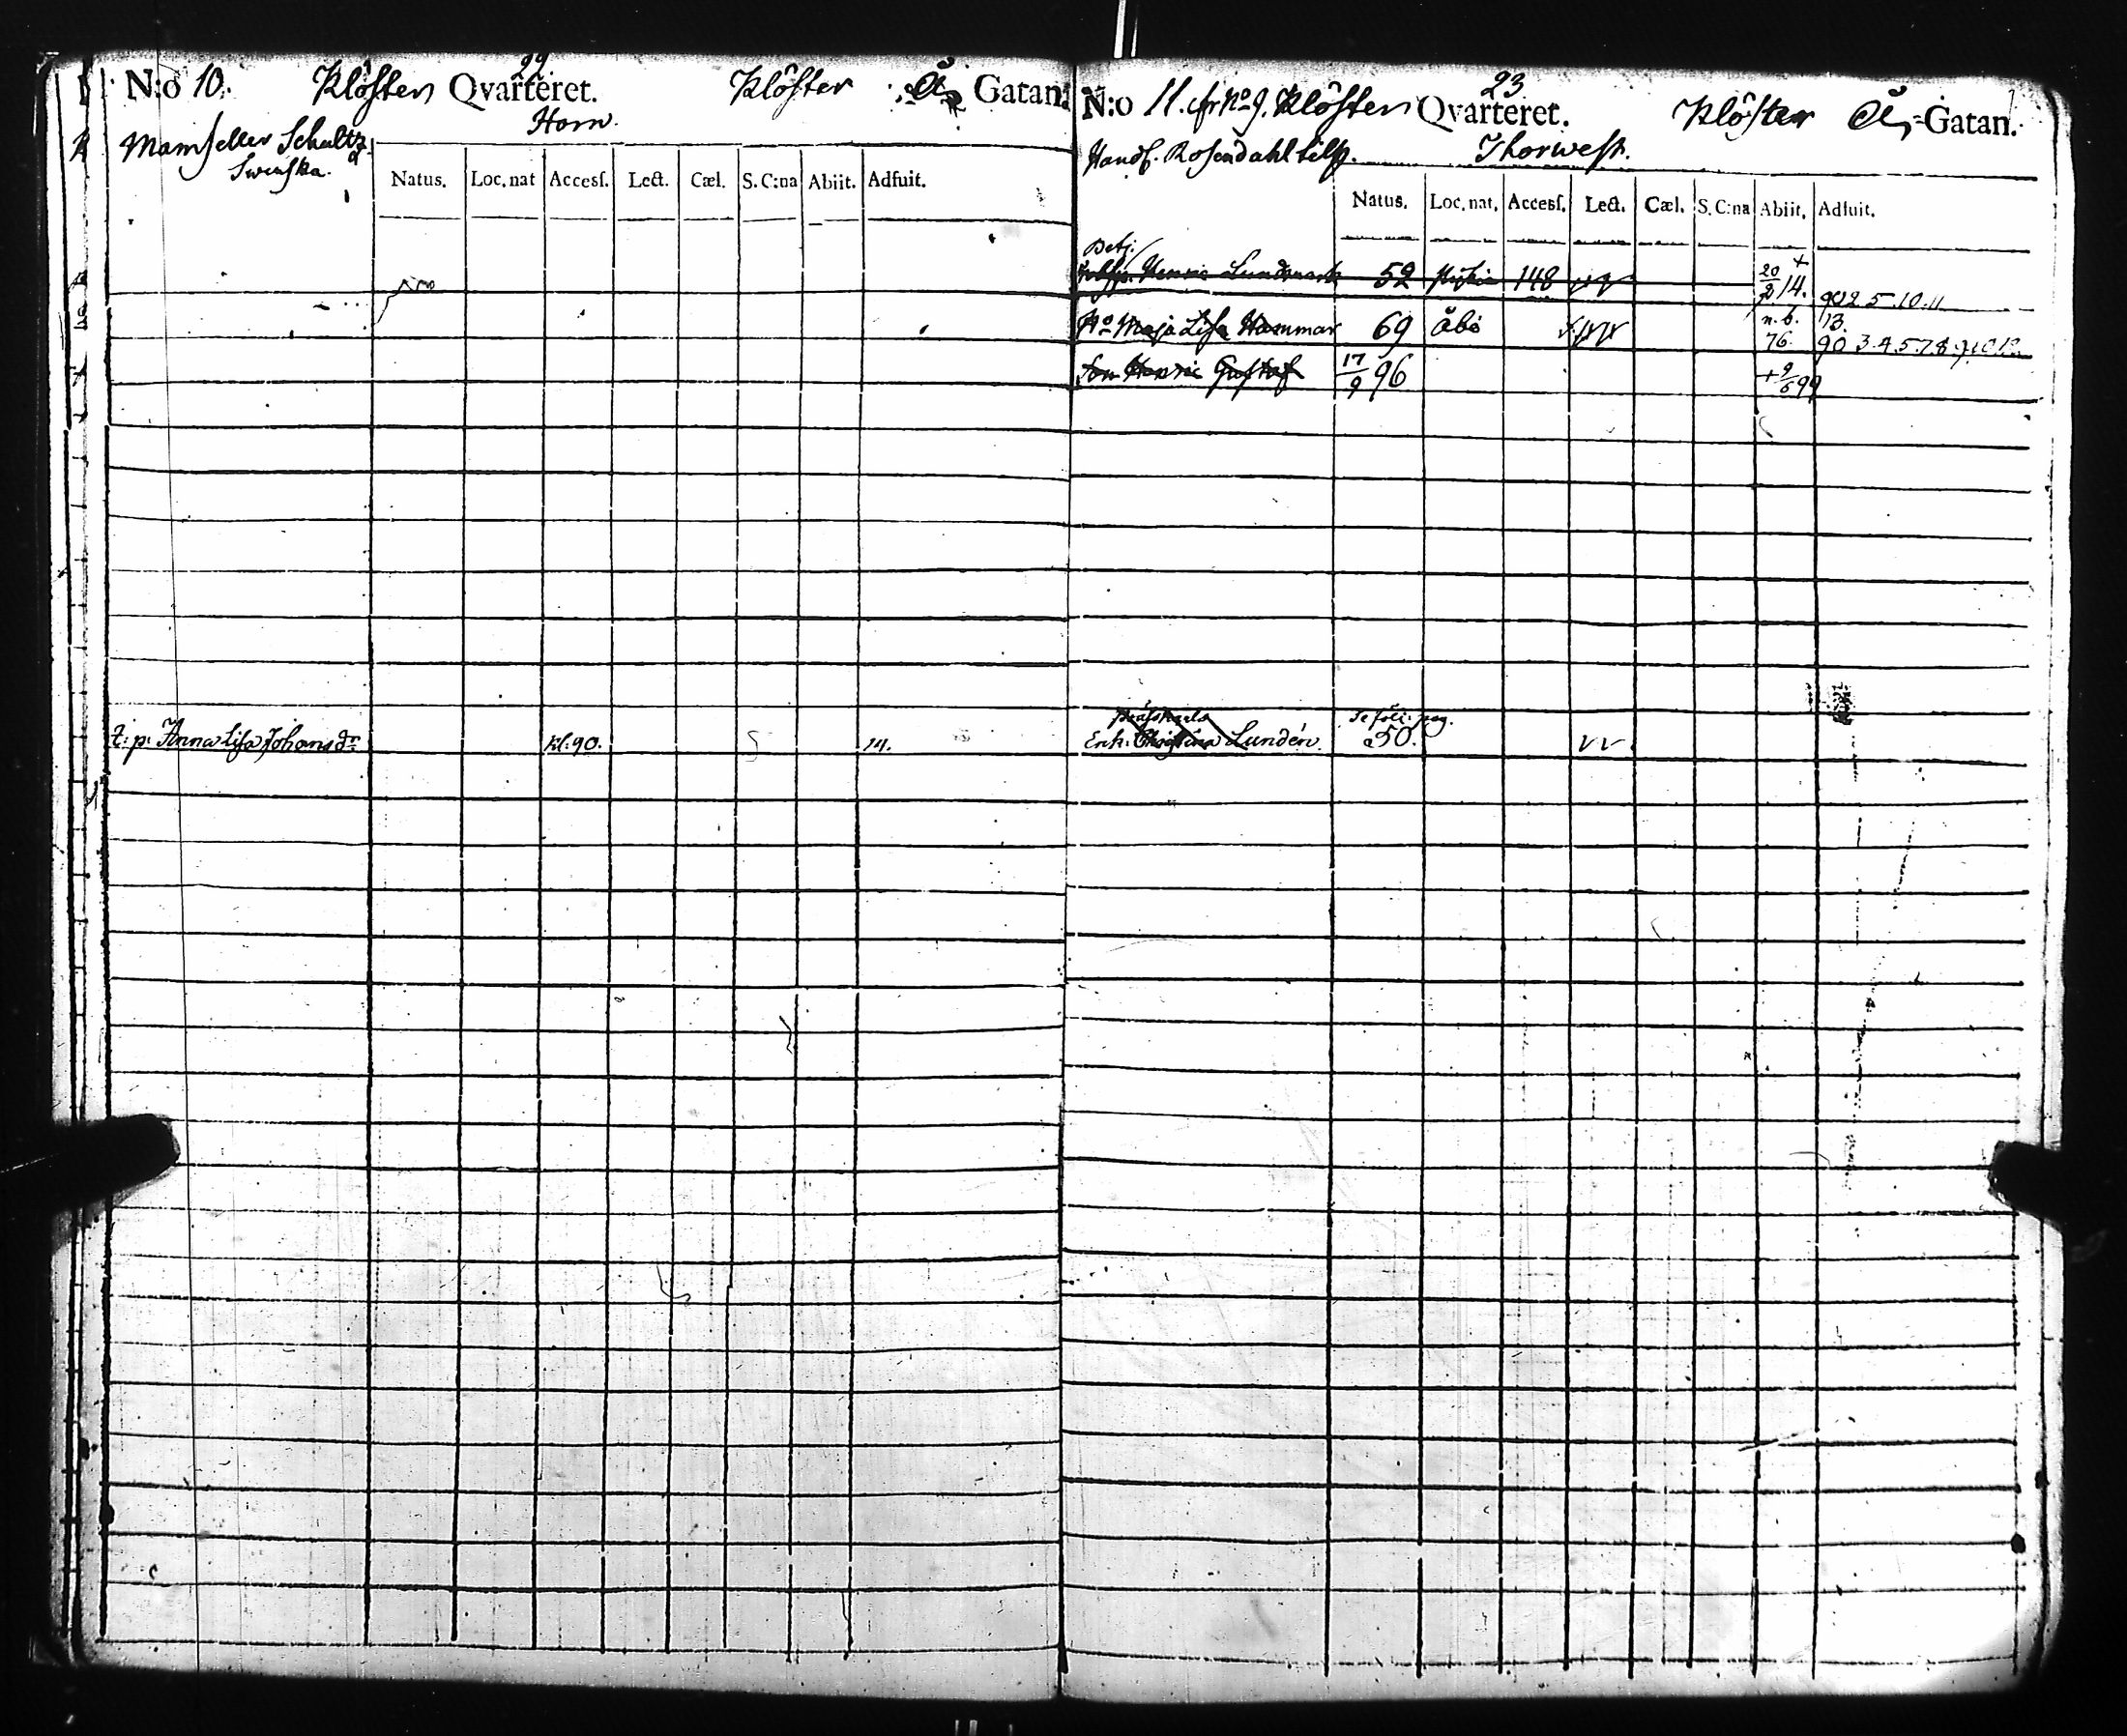 22
N:o 10. Klöster Qvarteret. Klöster Å Gatan.
Horn.
Mamseller Schultz
Swenska.
Natus. Loc. nat Accesſ. Lect. Cæl. S. C:na Abiit. Adfuit.
t: p: Anna Lisa Johansdr kl: 90. 14.
23
N:o 11. fr No 9. Klöster Qvarteret. Klöster Å Gatan.
Handl. Rosendahl Thorwest.
Natus. Loc. nat. Accesſ. Lect. Cæl. S. C:na Abiit. Adfuit.
Betj.
Henric Lundmark 52 148 20/2 14. + 902 5. 10. 11
Maja Lisa Hammar 69 Åbo n. b. 13.
76. 90 3. 4. 5. 7. 8. 9. 10. 12.
Son Henric Gustaf 17/9 96 + 99
Se följ: pag.
Enk: Christina Lundén 50.